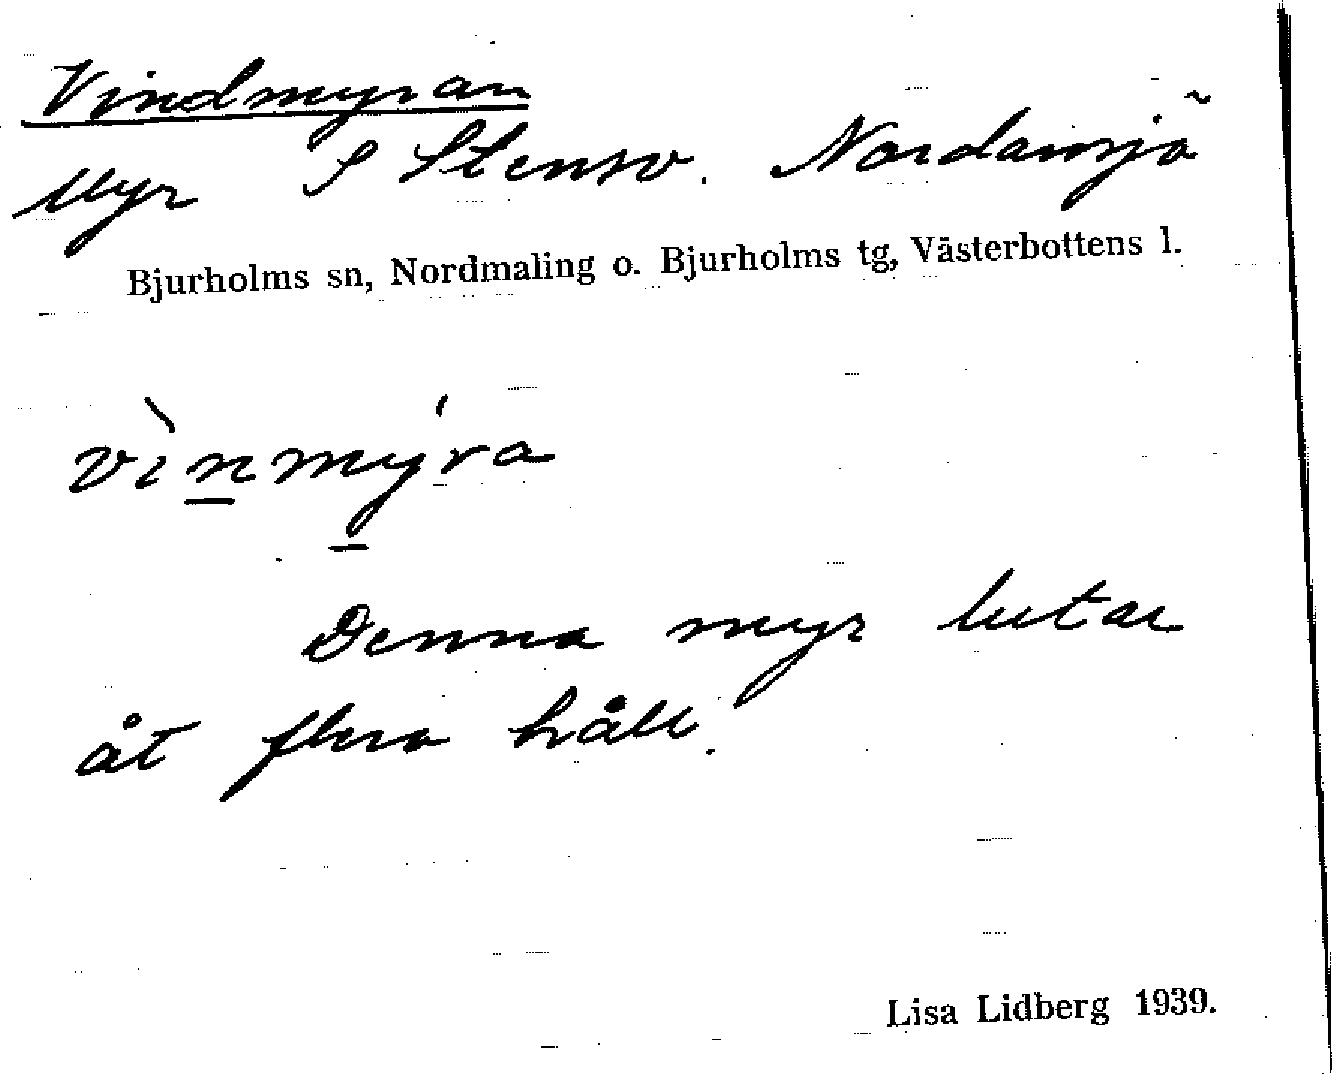 Vindmyran
Myr S Stensv. Nordansjö
Bjurholms sn, Nordmaling o. Bjurholms tg, Västerbottens l.
vìnmy̍ra
Denna myr lutar
åt flera håll.
Lisa Lidberg 1939.